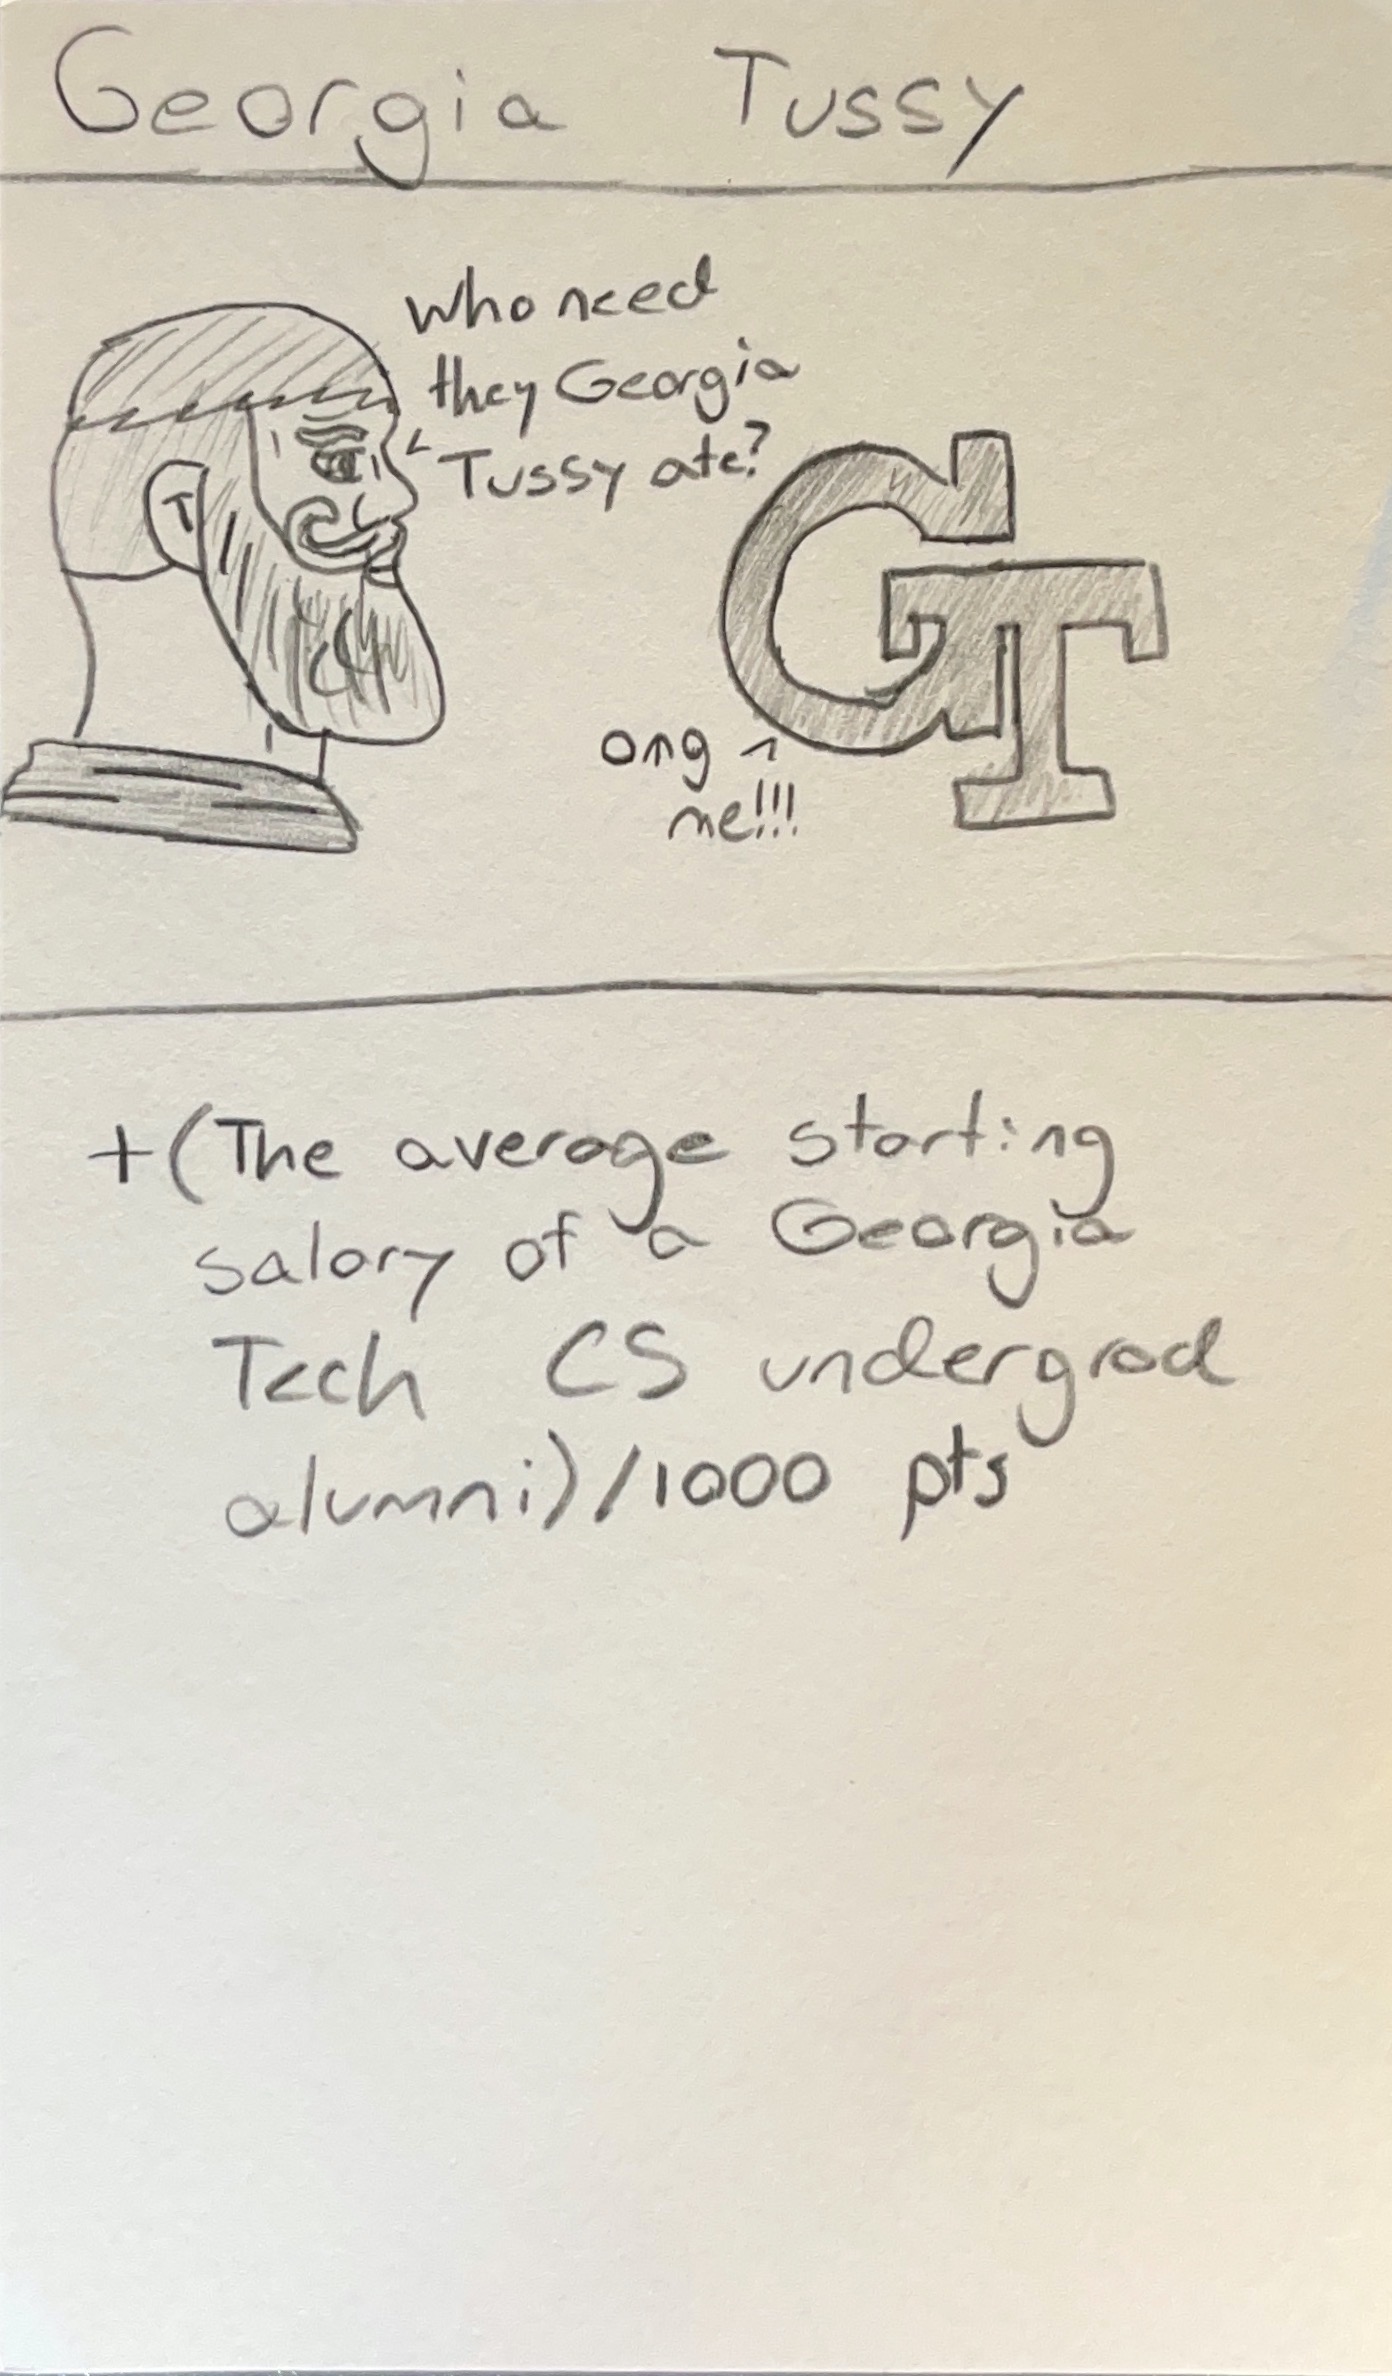 Georgia Tussy
who need
they Georgia
Tussy ate?
GT
ong
me!!!
+(The average starting
salary of a Georgia
Tech CS undergrad
alumni)/1000 pts